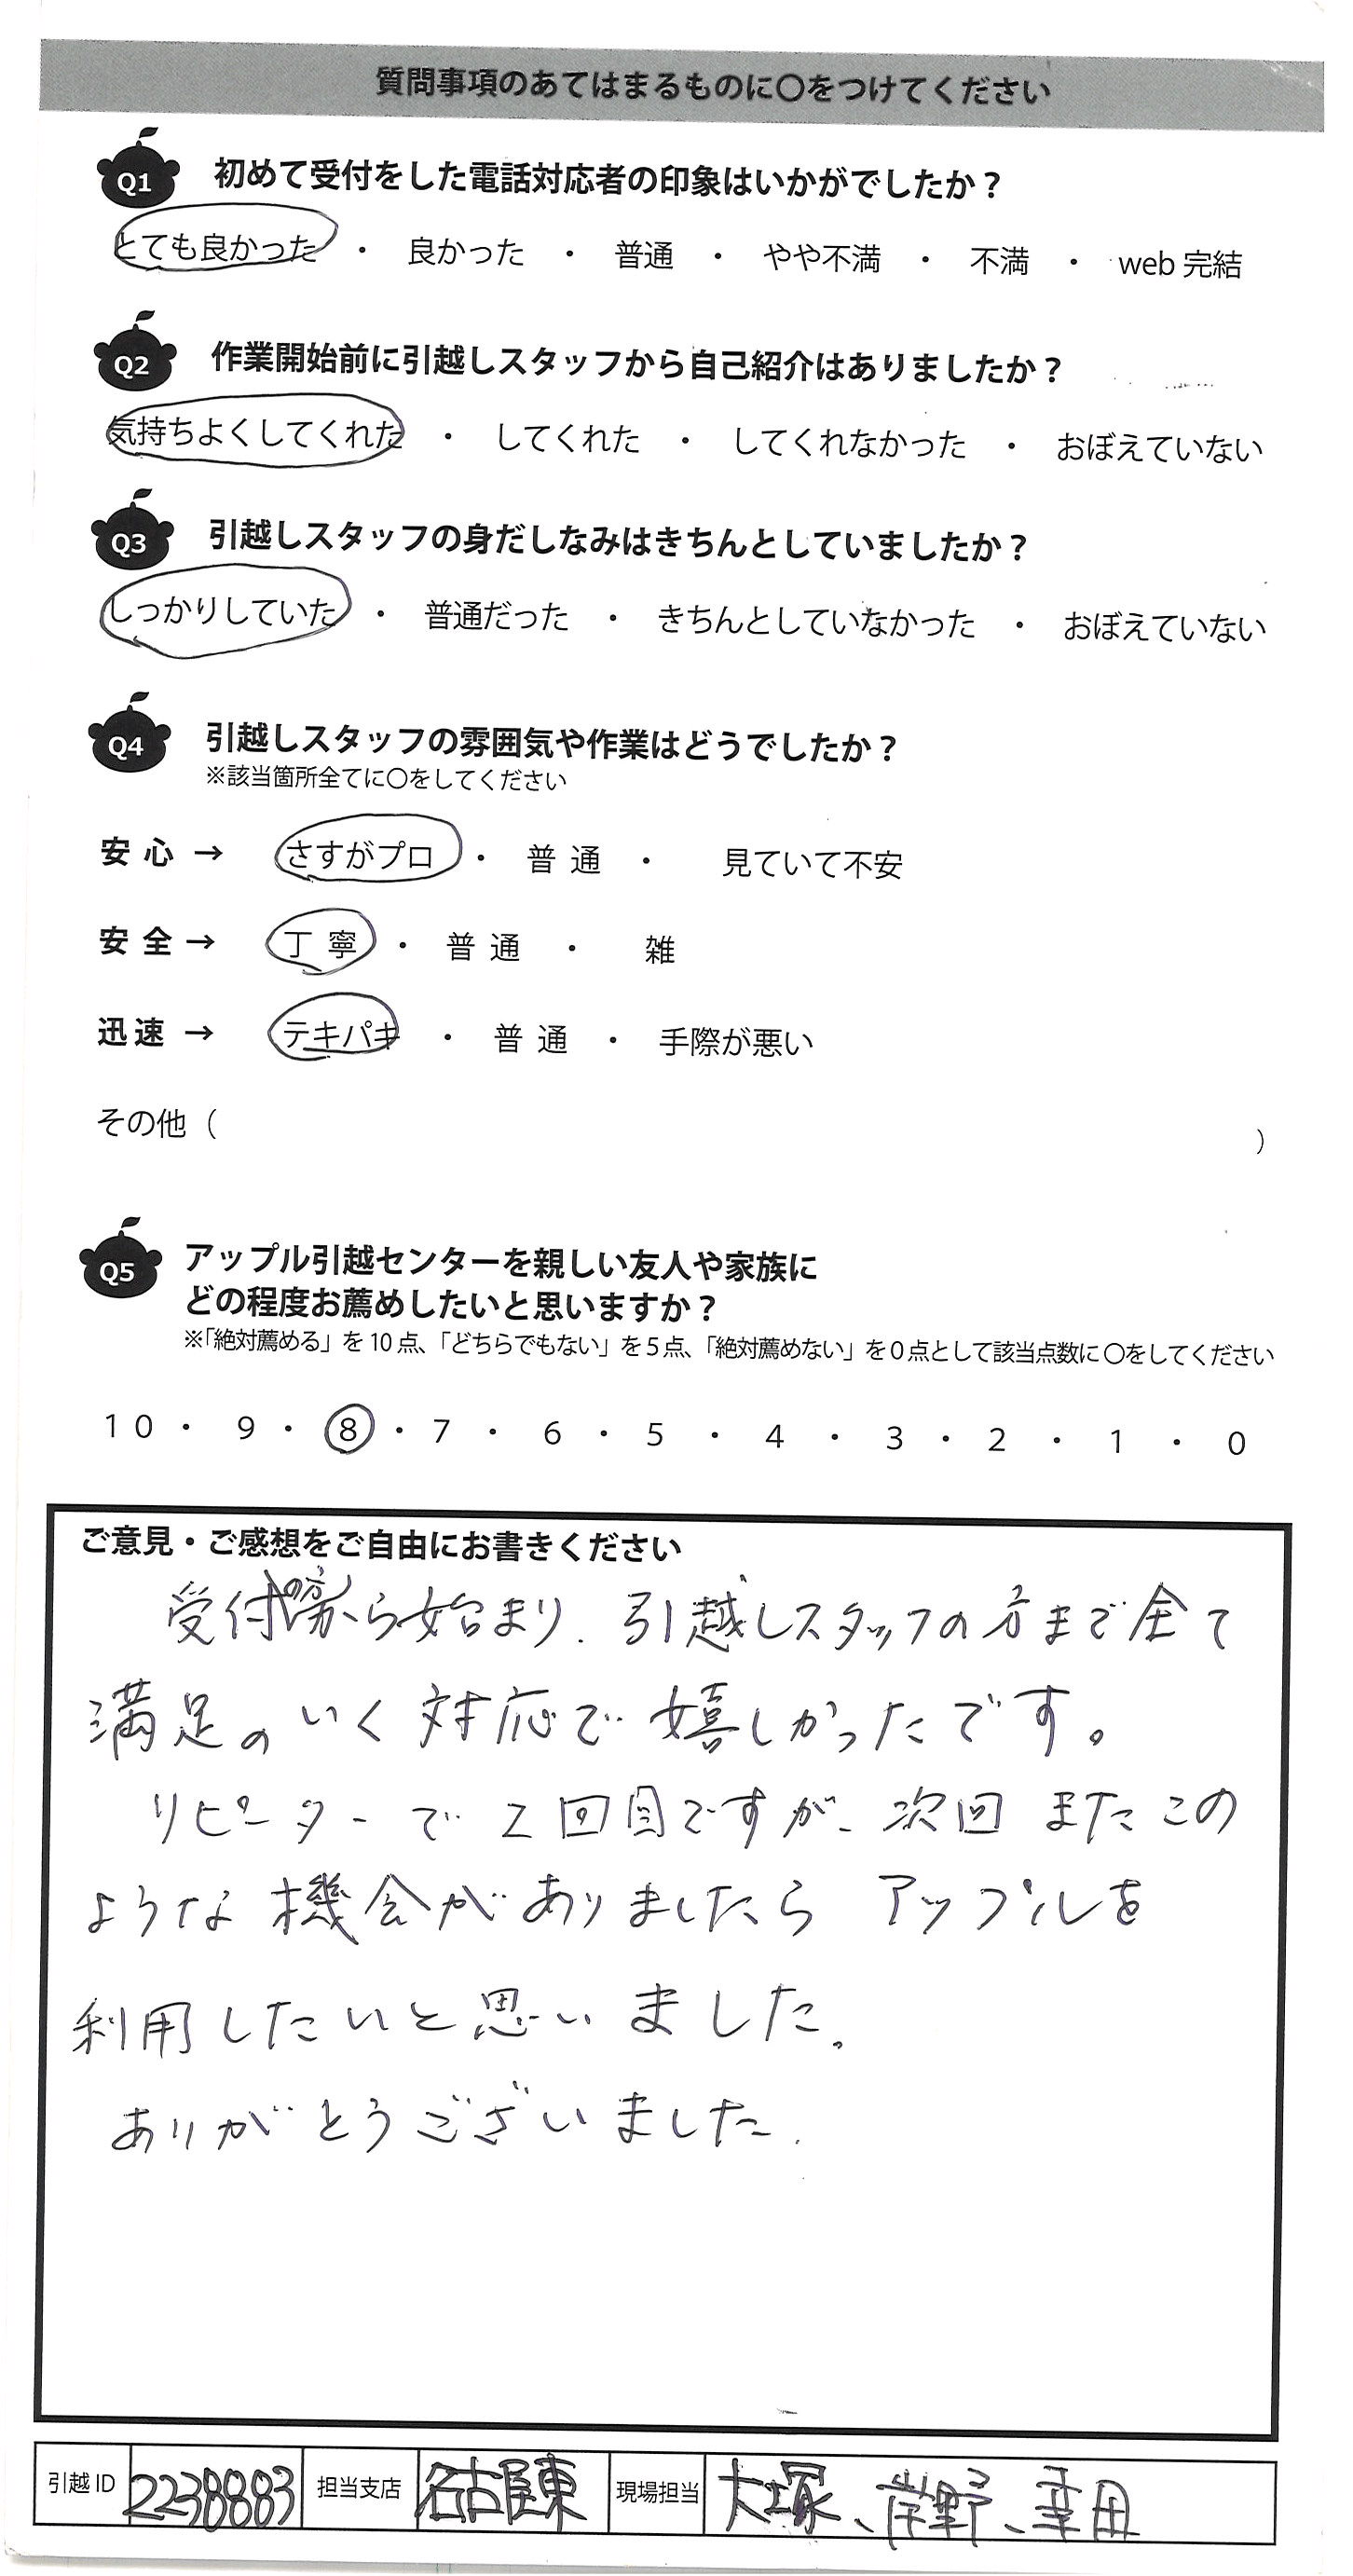 質問事項のあてはまるものに〇をつけてください
Q1 初めて受付をした電話対応者の印象はいかがでしたか？
とても良かった ・ 良かった ・ 普通 ・ やや不満 ・ 不満 ・ web完結
Q2 作業開始前に引越しスタッフから自己紹介はありましたか？
気持ちよくしてくれた ・ してくれた ・ してくれなかった ・ おぼえていない
Q3 引越しスタッフの身だしなみはきちんとしていましたか？
しっかりしていた ・ 普通だった ・ きちんとしていなかった ・ おぼえていない
Q4 引越しスタッフの雰囲気や作業はどうでしたか？
※該当箇所全てに〇をしてください
安心 → さすがプロ ・ 普通 ・ 見ていて不安
安全 → 丁寧 ・ 普通 ・ 雑
迅速 → テキパキ ・ 普通 ・ 手際が悪い
その他（ ）
Q5 アップル引越センターを親しい友人や家族に
どの程度お薦めしたいと思いますか？
※「絶対薦める」を10点、「どちらでもない」を5点、「絶対薦めない」を0点として該当点数に〇をしてください
10 ・ 9 ・ 8 ・ 7 ・ 6 ・ 5 ・ 4 ・ 3 ・ 2 ・ 1 ・ 0
ご意見・ご感想をご自由にお書きください
受付の方から始まり、引越しスタッフの方まで全て
満足のいく対応で嬉しかったです。
リピーターで2回目ですが、次回またこの
ような機会がありましたらアップルを
利用したいと思いました。
ありがとうございました。
引越ID 2238883 担当支店 名古屋東 現場担当 大塚、岸野、幸田